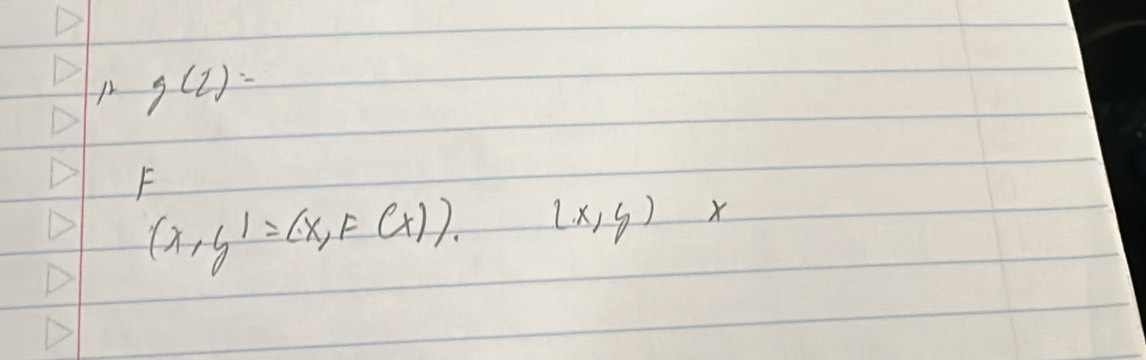 g(2)=
F
(x, y) = (x, F(x)). (x, y) x